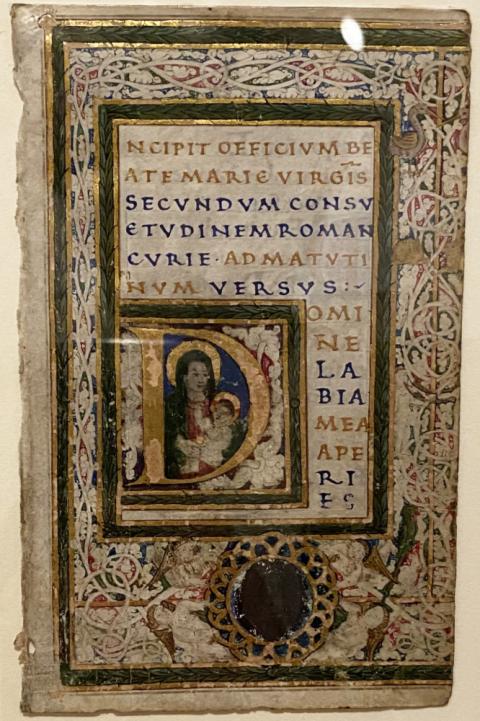 NCIPIT OFFICIVM BE
ATE MARIE VIRGIS
SECVNDVM CONSV
ETVDINEM ROMAN
CVRIE · AD MATVTI
NVM VERSVS :~
D
OMI
NE
LA
BIA
MEA
APE
RI
ES